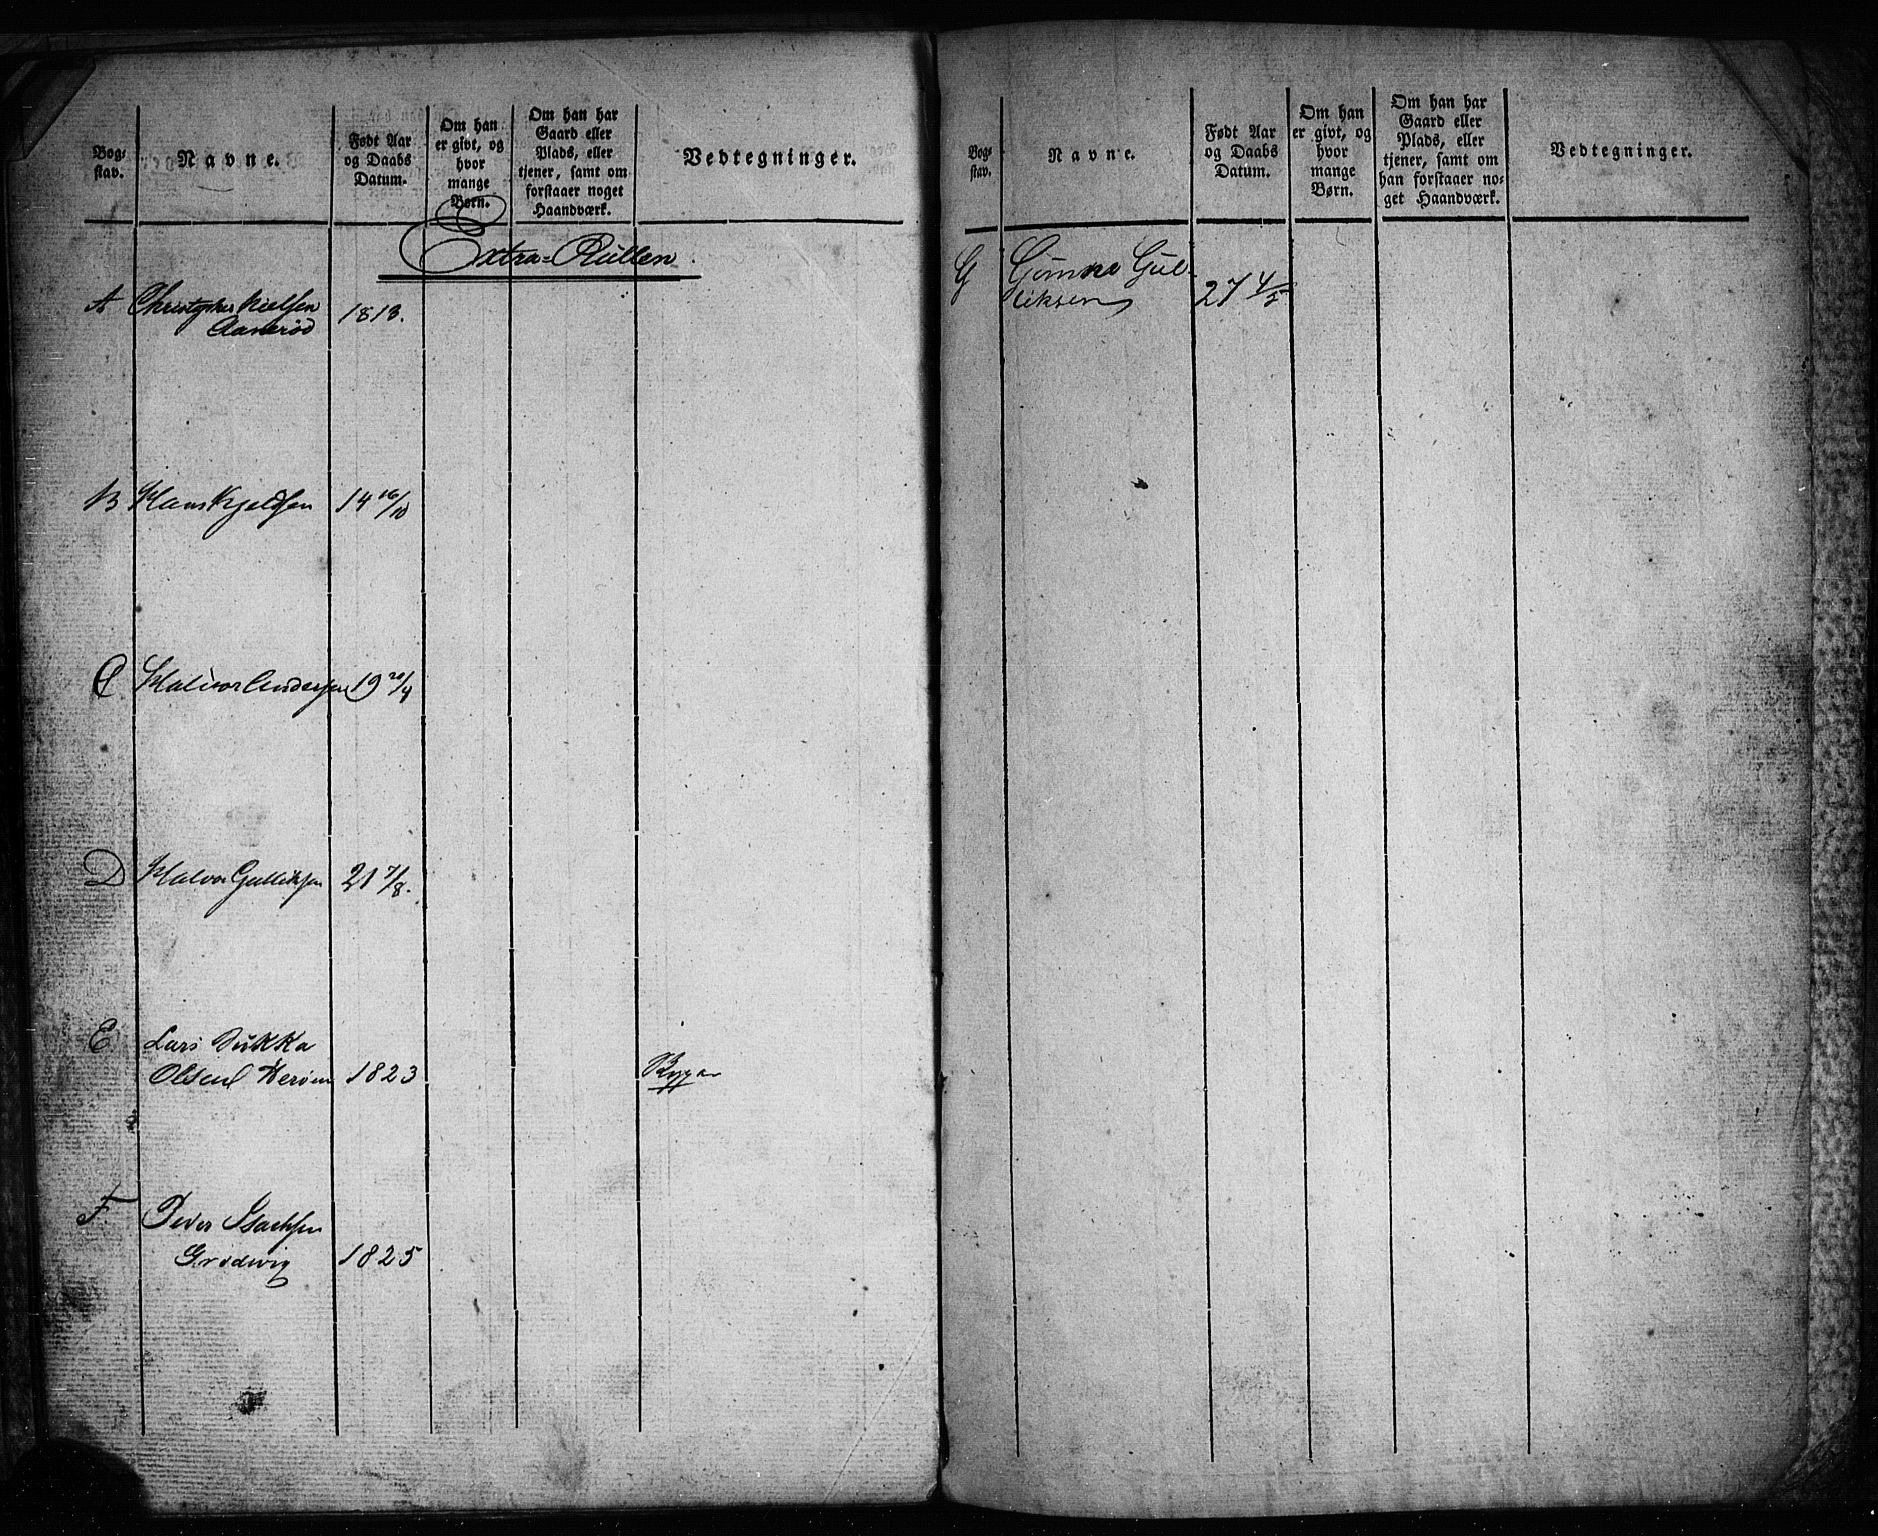 Bog-
stav.
Navne.
Født Aar
og Daabs
Datum.
Om han
er givt, og
hvor
mange
Børn.
Om han har
Gaard eller
Plads, eller
tjener, samt om
forstaaer noget
Haandværk.
Vedtegninger.
Extra-Rullen.
A Christopher Nielsen
Aamerød 1813.
B Hans Kjeldsen 14 16/10
C Halvor Andersen 19 20/4
D Halvor Gulliksen 21 7/8.
E Lars
Olsen 1823
F. Peder Isachsen
Grødvig 1825
Bog-
stav.
Navne.
Født Aar
og Daabs
Datum.
Om han
er givt, og
hvor
mange
Børn.
Om han har
Gaard eller
Plads, eller
tjener, samt om
han forstaaer no-
get Haandværk.
Vedtegninger.
G Gul-
liksen 27 4/5